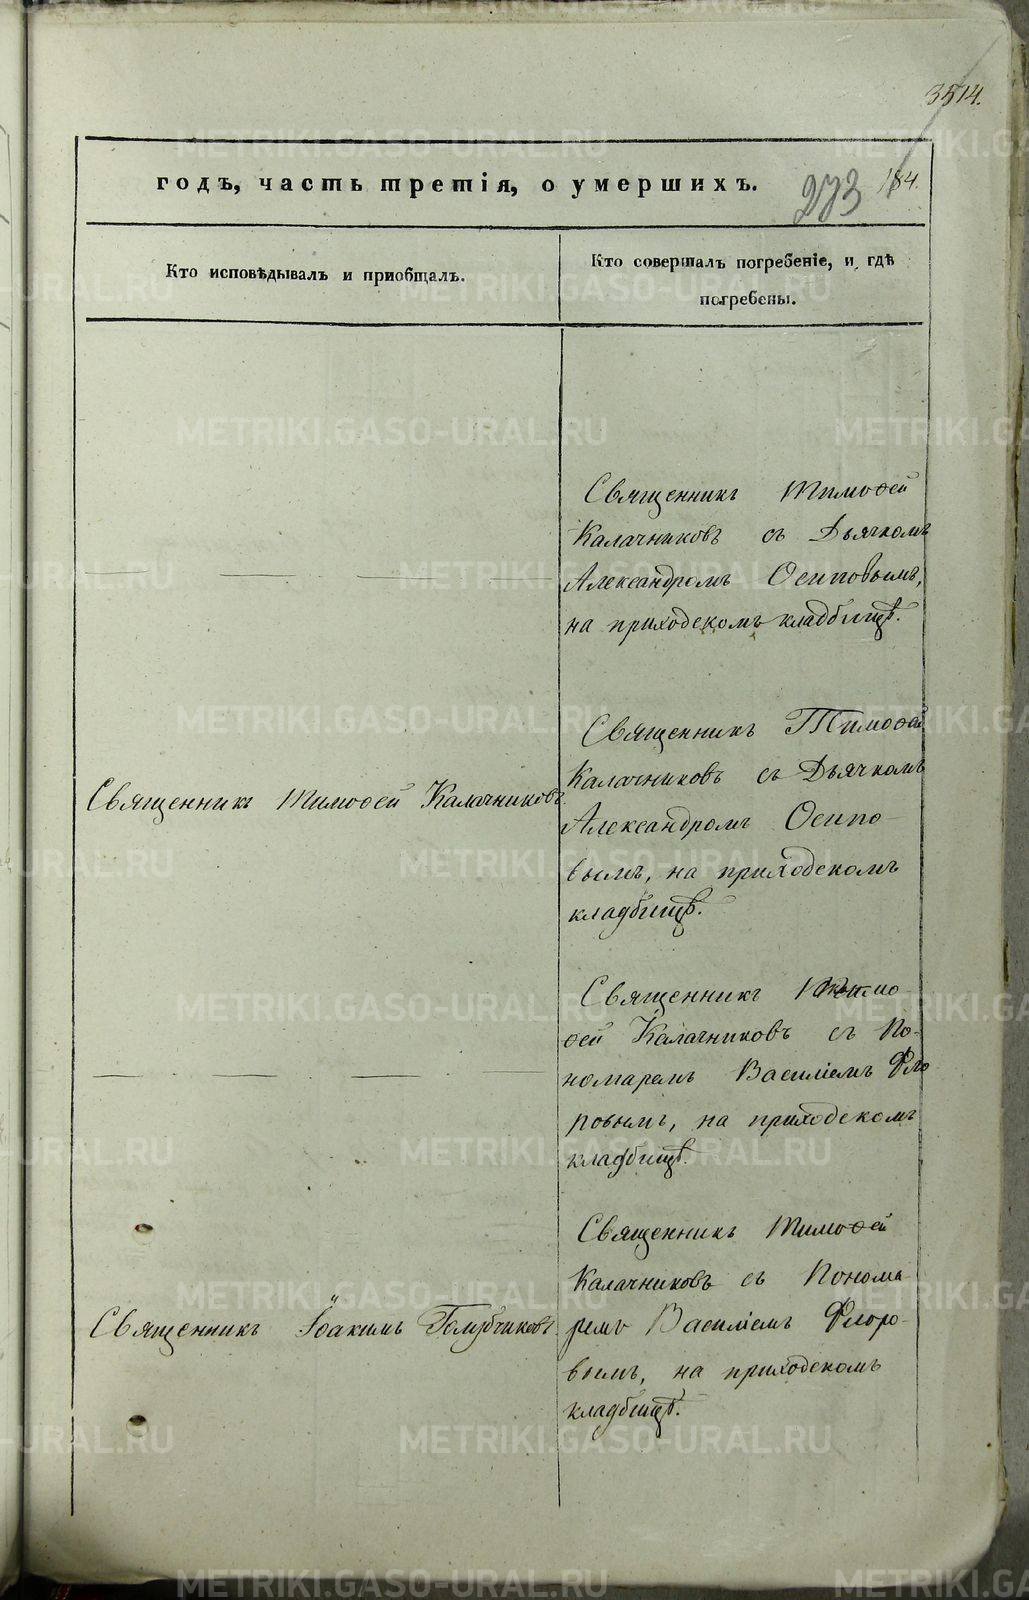 3514.
годъ, часть третія, о умершихъ.
273
184.
Кто исповѣдывалъ и приобщалъ.
Кто совершалъ погребеніе, и гдѣ
погребены.
Священникъ Тимоѳей
Калачниковъ съ Дьячкомъ
Александромъ Осиповымъ,
на приходскомъ кладбищѣ.
Священникъ Тимоѳей Калачниковъ.
Священникъ Тимоѳей
Калачниковъ съ Дьячкомъ
Александромъ Осипо-
вымъ, на приходскомъ
кладбищѣ.
Священникъ Тимо-
ѳей Калачниковъ съ По-
номаремъ Василіемъ Фло
ровымъ, на приходскомъ
кладбищѣ.
Священникъ Іоакимъ Голубчиковъ
Священникъ Тимоѳей
Калачниковъ съ Понома-
ремъ Василіемъ Флоро-
вымъ, на приходскомъ
кладбищѣ.
METRIKI.GASO-URAL.RU